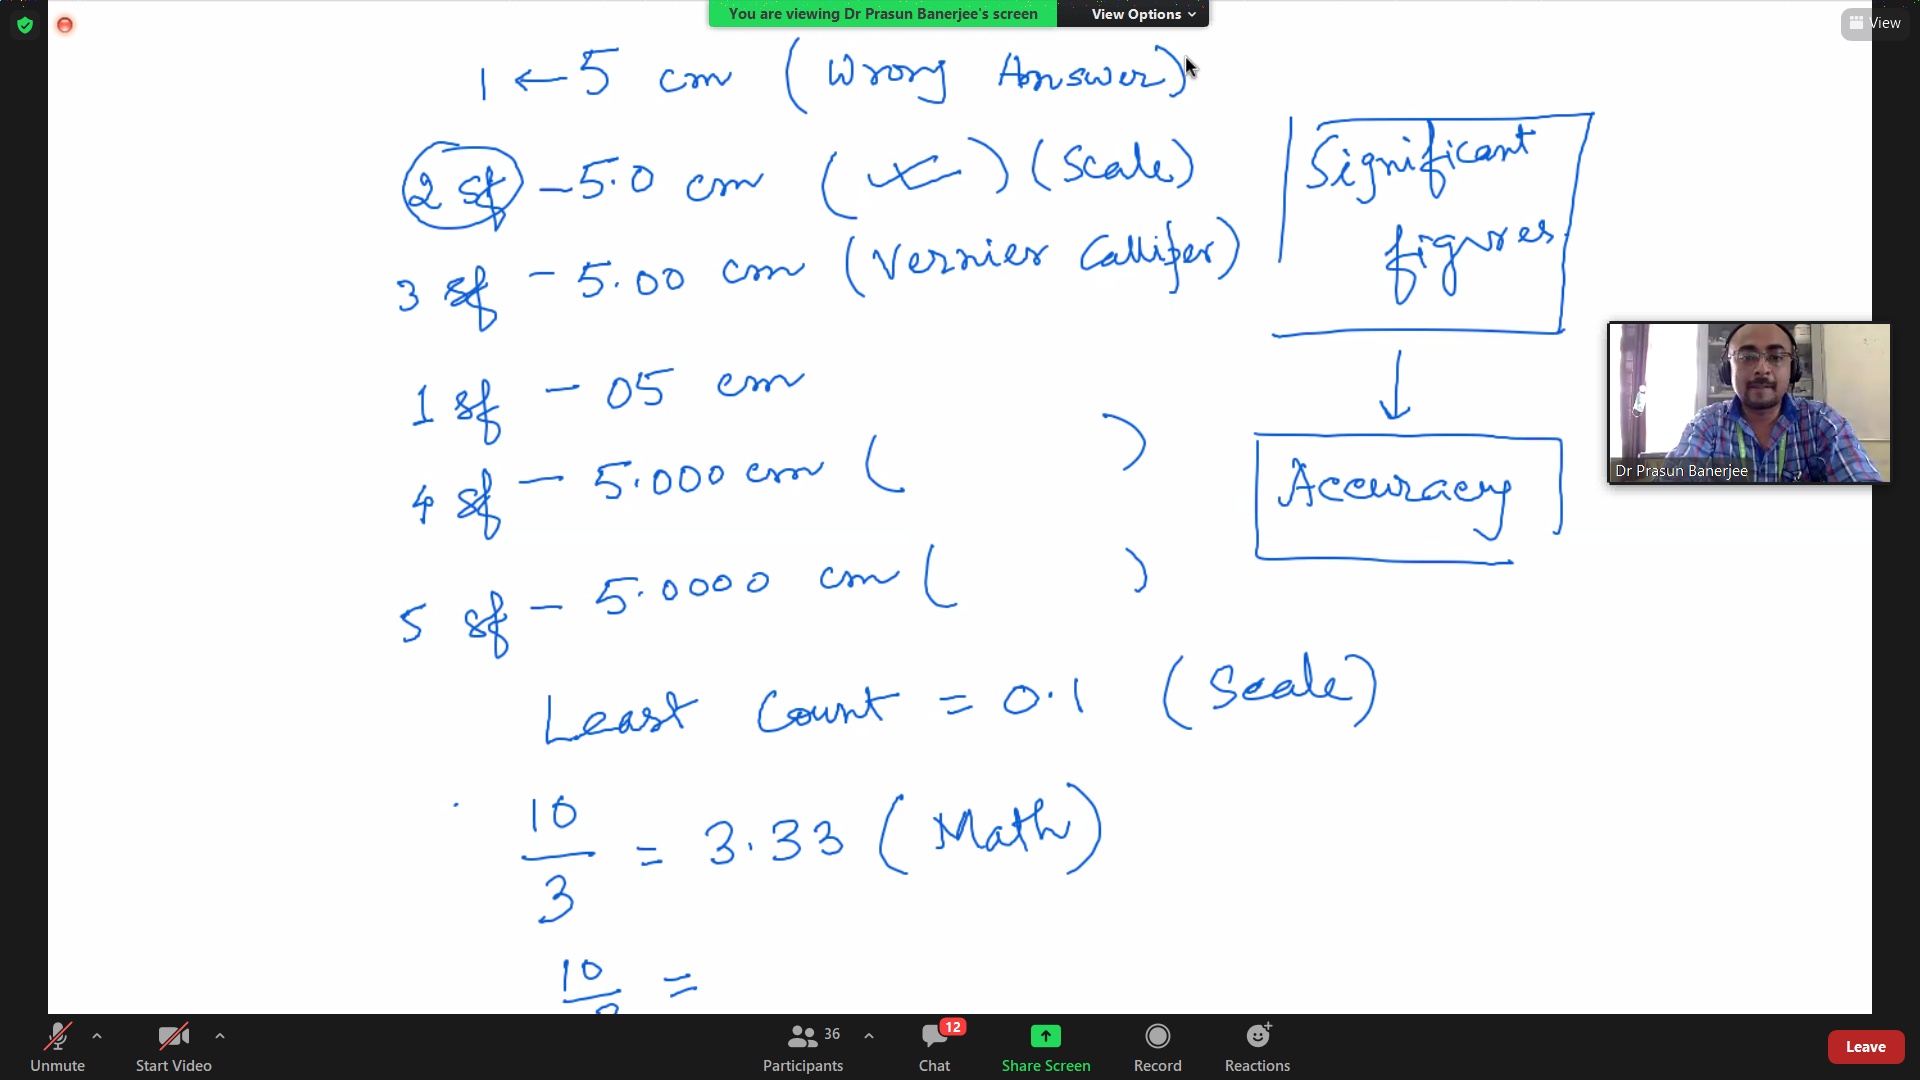 You are viewing Dr Prasun Banerjee's screen
View Options
View
1 ← 5 cm (Wrong Answer)
2 sf – 5.0 cm ( ) (Scale)
3 sf – 5.00 cm (Vernier Calliper)
1 sf – 05 cm
4 sf – 5.000 cm ( )
5 sf – 5.0000 cm ( )
Least Count = 0.1 (Scale)
10
3
= 3.33 (Math)
10
=
Significant
figures
↓
Accuracy
Dr Prasun Banerjee
Unmute
Start Video
36
Participants
12
Chat
Share Screen
Record
Reactions
Leave